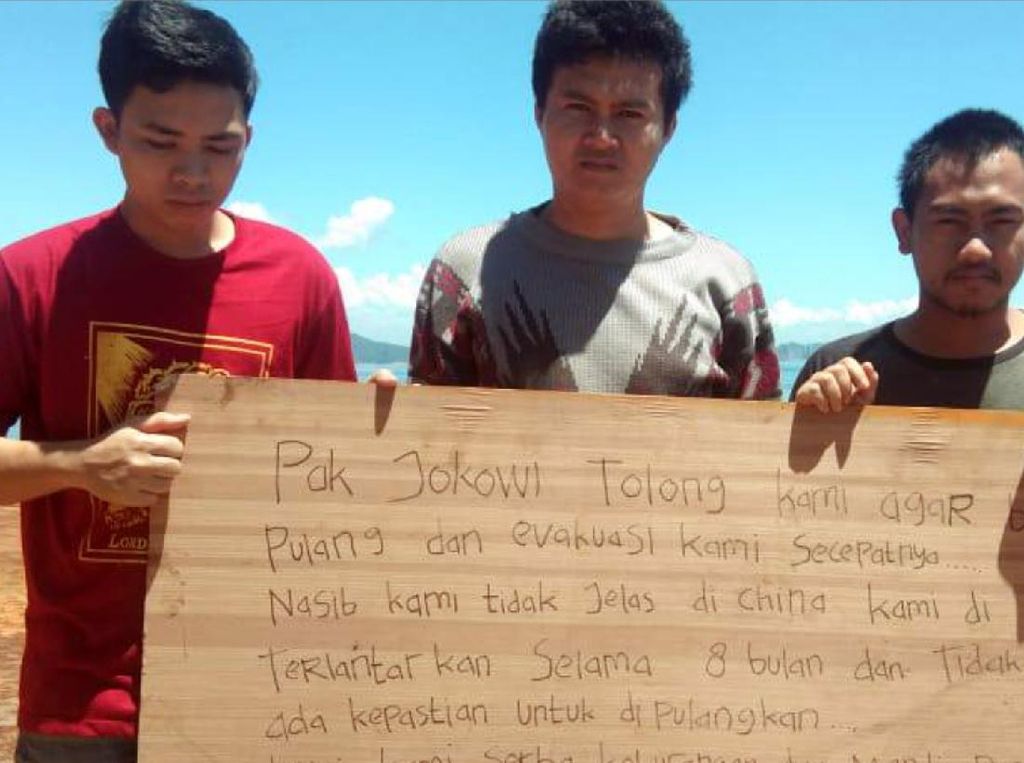 LORD
Pak JOKOWI Tolong kami agar
Pulang dan evakuasi kami secepatnya.....
Nasib kami tidak Jelas di china kami di
Terlantar kan Selama 8 bulan dan Tidak
ada kepastian untuk di pulangkan...
kami serba kekurangan